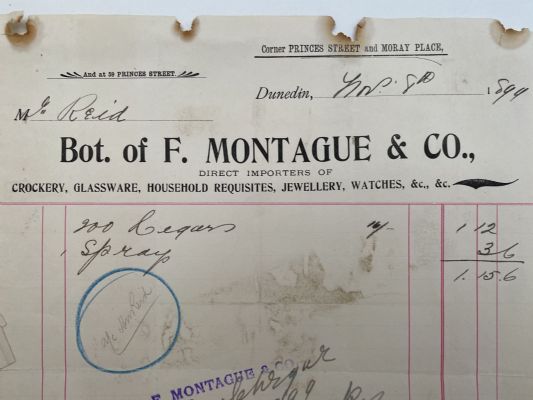 Corner PRINCES STREET and MORAY PLACE,
And at 59 PRINCES STREET.
Dunedin, Nov. 8th 1894
Mr Reid
Bot. of F. MONTAGUE & CO.,
DIRECT IMPORTERS OF
CROCKERY, GLASSWARE, HOUSEHOLD REQUISITES, JEWELLERY, WATCHES, &c., &c.
200 Cegars 16/- 1 12
1 Spray 3 6
1. 15. 6
Reid
F. MONTAGUE & CO